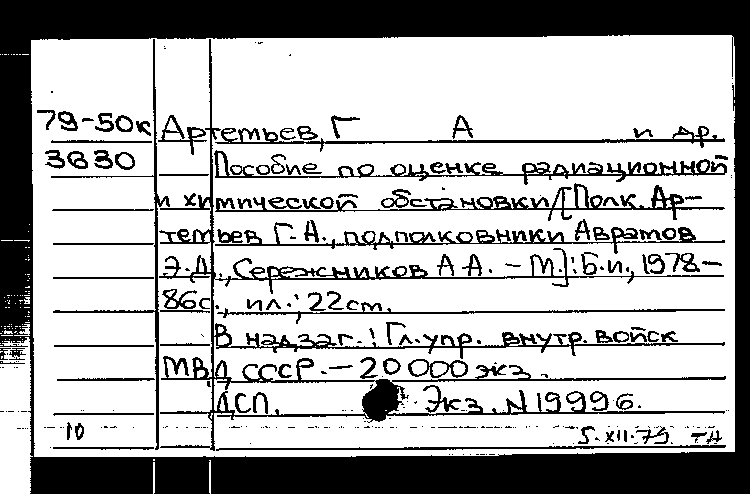 79-50к Артемьев, Г А и др.
3830 Пособие по оценке радиационной
и химической обстановки/[Полк. Ар-
темьев Г.А., подполковники Авратов
Э.Д., Сережников А А. - М.]: Б.и., 1978.-
86с., ил.; 22см.
В надзаг.: Гл. упр. внутр. войск
МВД СССР. - 20 000 экз.
ДСП. Экз. N 19996.
10 5.XII.79 ТА